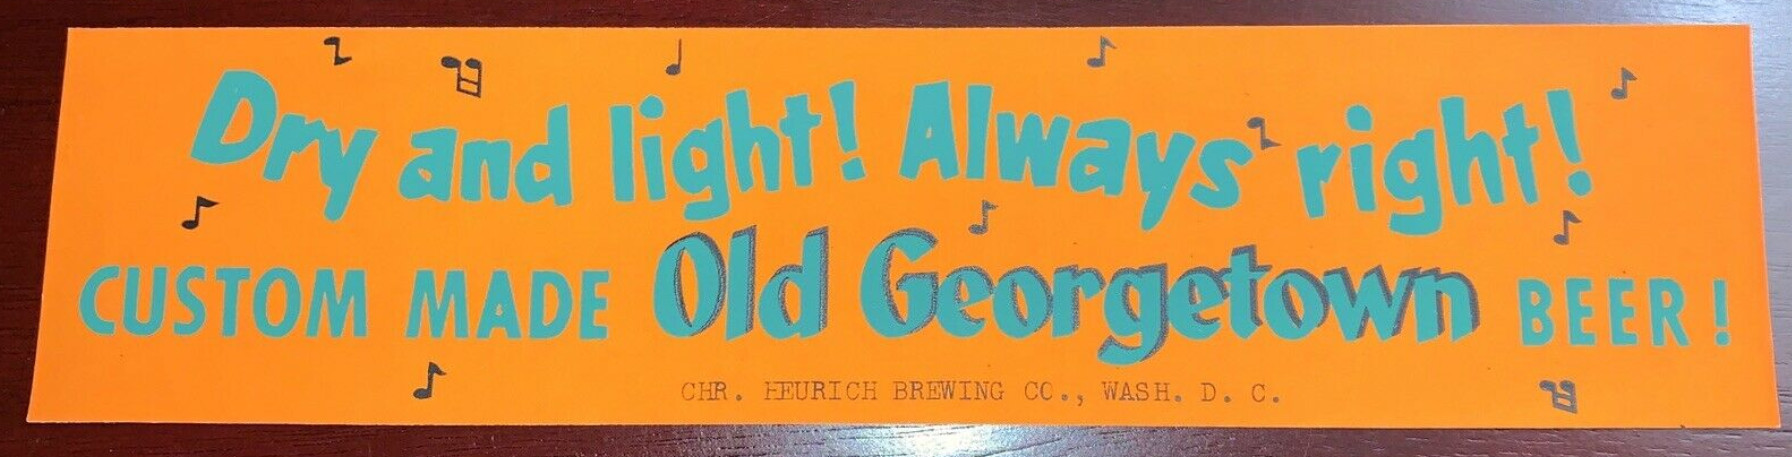 Dry and light! Always right!
CUSTOM MADE Old Georgetown BEER!
CHR. HEURICH BREWING CO., WASH. D. C.